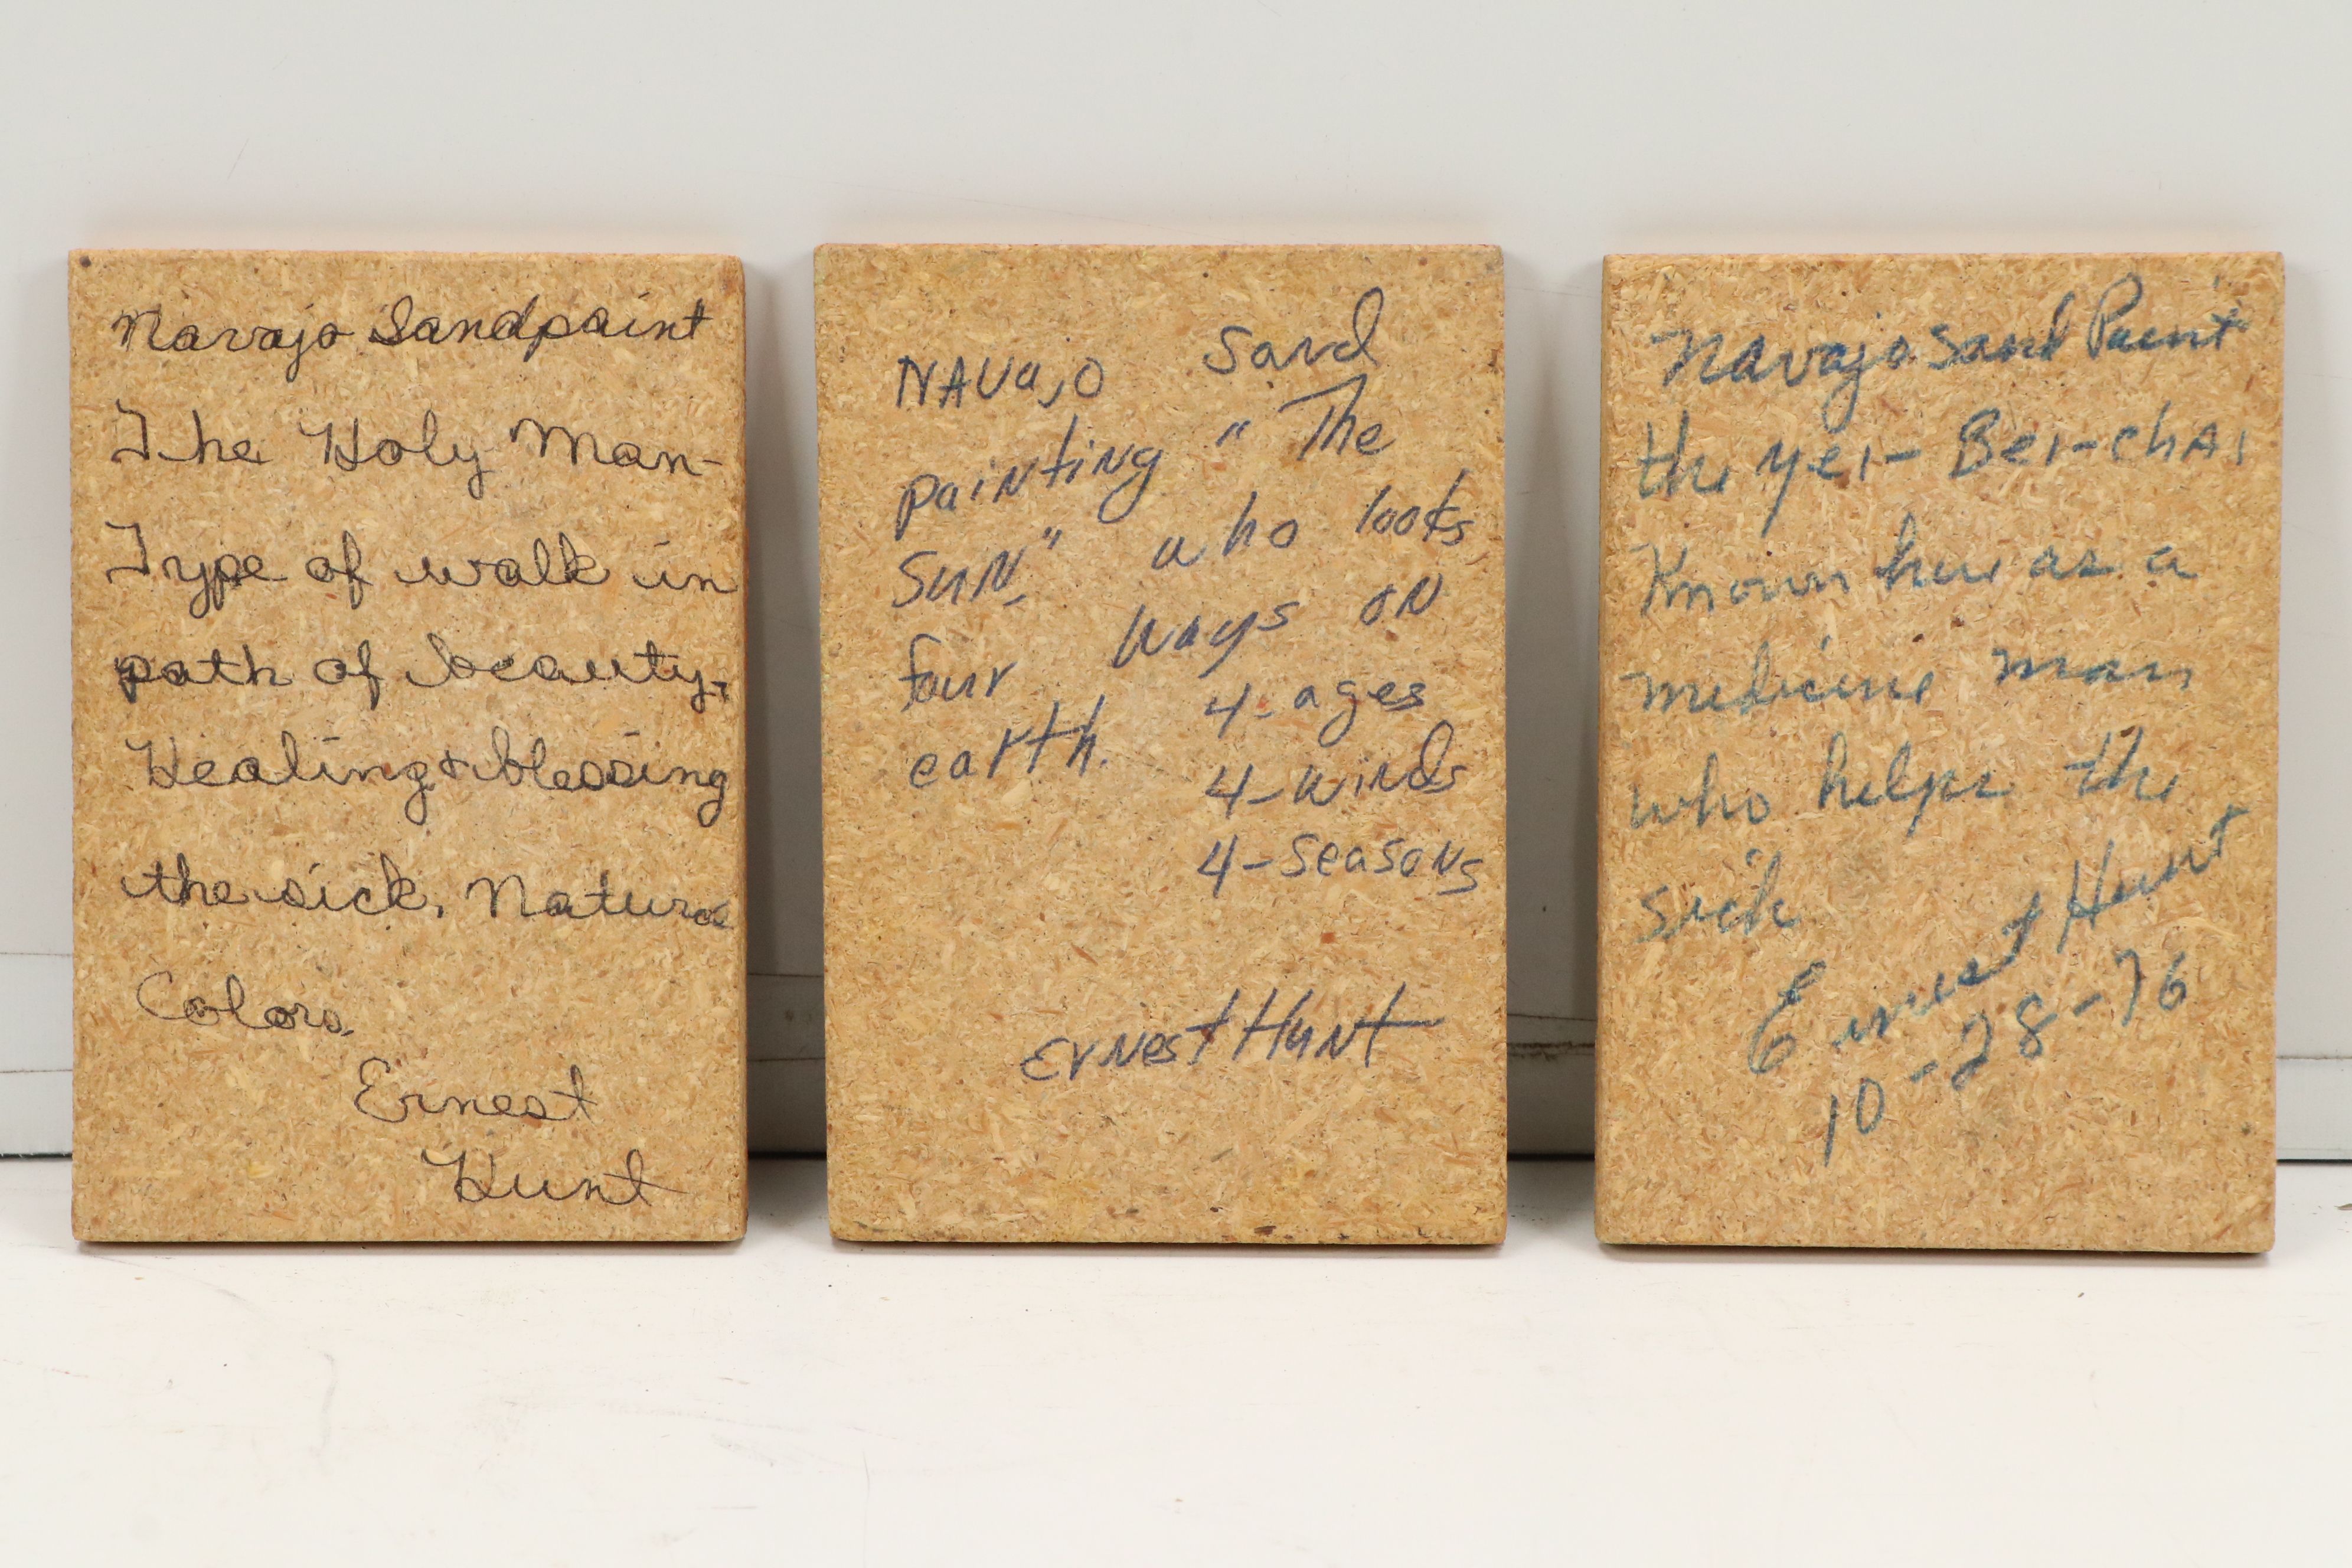 Navajo Sandpaint
The Holy Man-
Type of walk in
path of beauty,
Healing & blessing
the sick. Natural
Colors.
Ernest
Hunt
NAVajO Sand
painting "The
SUN" who looks
four ways on
earth.
4-ages
4-winds
4-Seasons
Ernest Hunt
Navajo Sand Paint
the yei-Bei-chAi
Known here as a
medicine man
who helps the
sick
Ernest Hunt
10-28-76